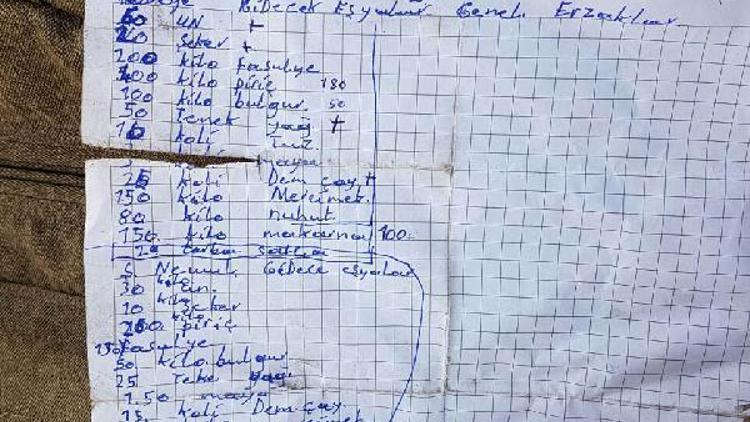 Gidecek Eşyalar Genel Erzaklar
60 UN +
20 şeker +
200 kilo fasulye
400 kilo piriç 180
100 kilo bulgur 50
50 Tenek yağ +
10 koli Tuz
maya
25 koli Dem çay +
150 kilo Mercimek
80 kilo nuhut
150 kilo makarna 100
20 torba
Gidece eşyalar
30 un
10 şeker
kilo
200 piriç
150 fasulye
50 kilo bulgur
25 Teke yag
1.50 maya
15 koli Dem çay